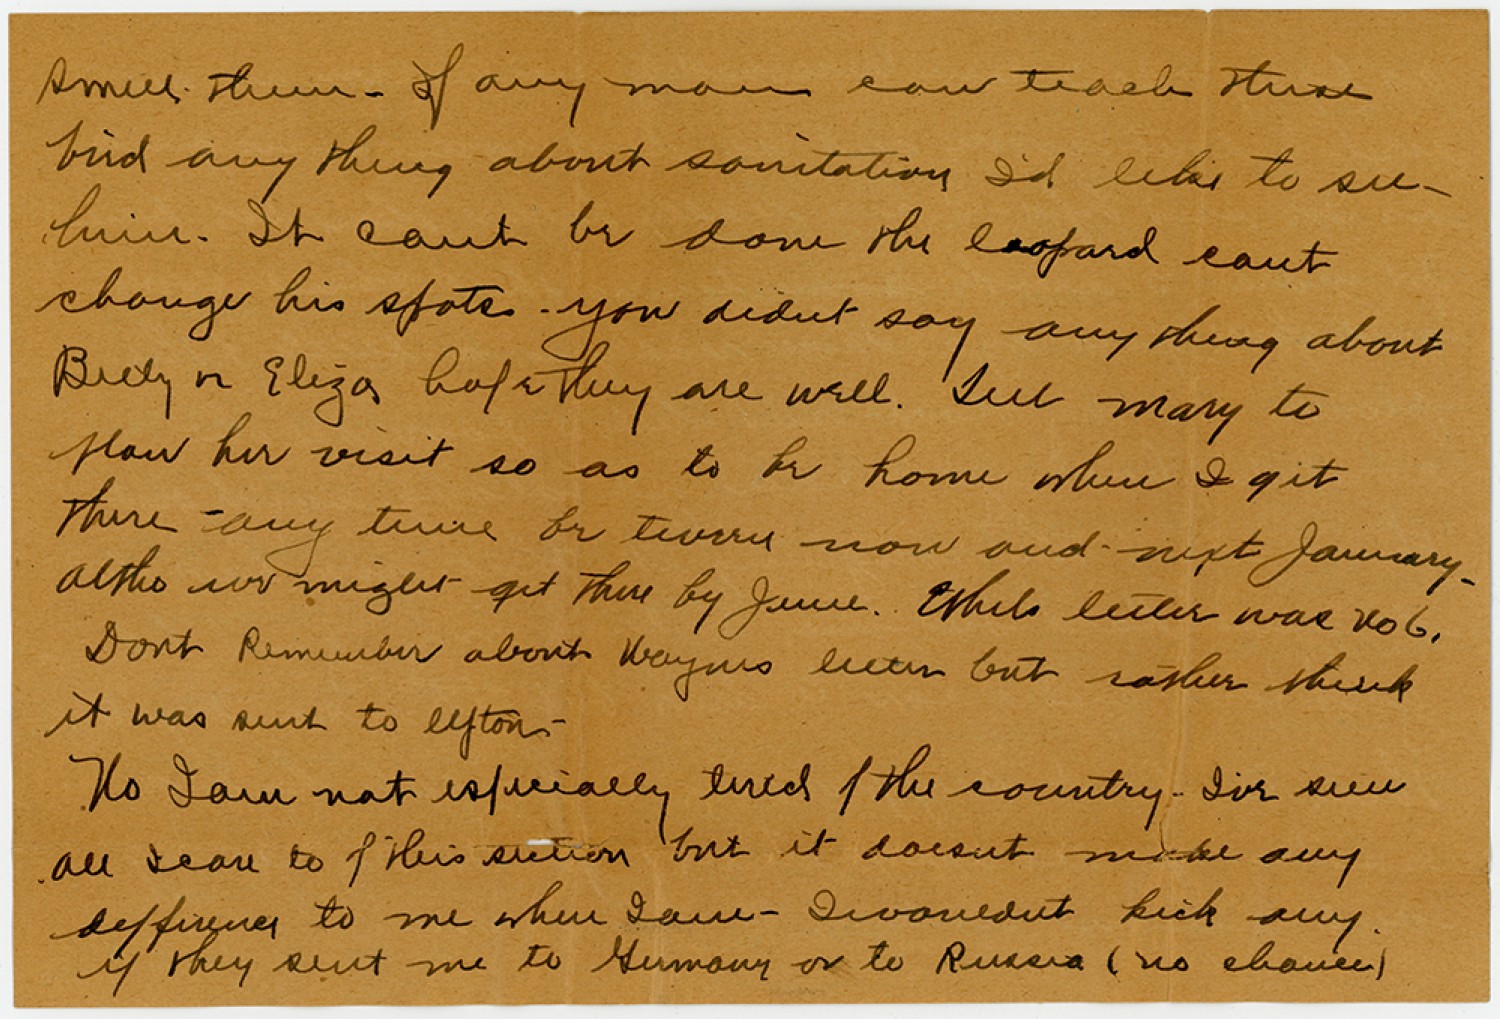 smell them - If any man can teach these
bird any thing about sanitation I'd like to see -
him. It cant be done the leopard cant
change his spots - you didnt say any thing about
Billy or Eliza hope they are well. Tell Mary to
plan her visit so as to be home when I get
there - any time be tween now and next January -
altho we might get there by June. Ethels letter was No 6.
Dont Remember about Waynes letter but rather think
it was sent to Upton -
No I am not especially tired of the country - Ive seen
all I care to of this section but it doesnt make any
difference to me where I am - I wouldnt kick any
if they sent me to Germany or to Russia (no chance)